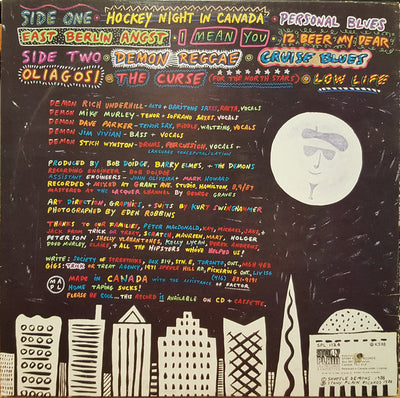 SIDE ONE • HOCKEY NIGHT IN CANADA • PERSONAL BLUES
EAST BERLIN ANGST • I MEAN YOU • 12 BEER MY DEAR
SIDE TWO • DEMON REGGAE • CRUISE BLUES
OLIAGOSI • THE CURSE (FOR THE NORTH STARS) • LOW LIFE
DEMON RICH UNDERHILL - ALTO + BARITONE SAXES, VOCALS
DEMON MIKE MURLEY - TENOR + SOPRANO SAXES, VOCALS
DEMON DAVE PARKER - TENOR SAX, VOCALS
DEMON JIM VIVIAN - BASS + VOCALS
DEMON STICH WYNSTON - DRUMS, PERCUSSION, VOCALS +
LANGUAGE CONCEPTUALIZATION
PRODUCED BY BOB DOIDGE, BARRY ELMES, + THE DEMONS
RECORDING ENGINEER - BOB DOIDGE
ASSISTANT ENGINEERS - JOHN OLIVEIRA + MARK HOWARD
RECORDED + MIXED AT GRANT AVE. STUDIO, HAMILTON, 8,9/87
MASTERED AT THE LACQUER CHANNEL BY GEORGE GRAVES
ART DIRECTION, GRAPHICS, + SUITS BY KURT SWINGHAMMER
PHOTOGRAPHED BY EDEN ROBBINS
THANKS TO OUR FAMILIES, PETER MACDONALD, KAY, MICHAEL, JANE,
JACK FROM TRICK OR TREAT, SCRATCH, MAUREEN, MARY, HOLGER
PETERSEN, SHELLY, KELLY LYCAN, DEREK ANDREWS,
DOUG MURLEY, CLAIRE, + ALL THE HIPSTERS WHO'VE HELPED US!
WRITE: SOCIETY OF STRUTHERS, BOX 514, STN. E, TORONTO, ONT.,
GIGS: TRICK OR TREAT AGENCY, 1971 SPRUCE HILL RD, PICKERING ONT, L1V 1S6
(416) 831-9191
MAPL
MADE IN CANADA WITH THE ASSISTANCE OF FACTOR
HOME TAPING SUCKS!
PLEASE BE COOL... THIS RECORD IS AVAILABLE ON CD + CASSETTE.
STONY PLAIN
SPL 1124
℗ SHUFFLE DEMONS 1988
© STONY PLAIN RECORDS 1988